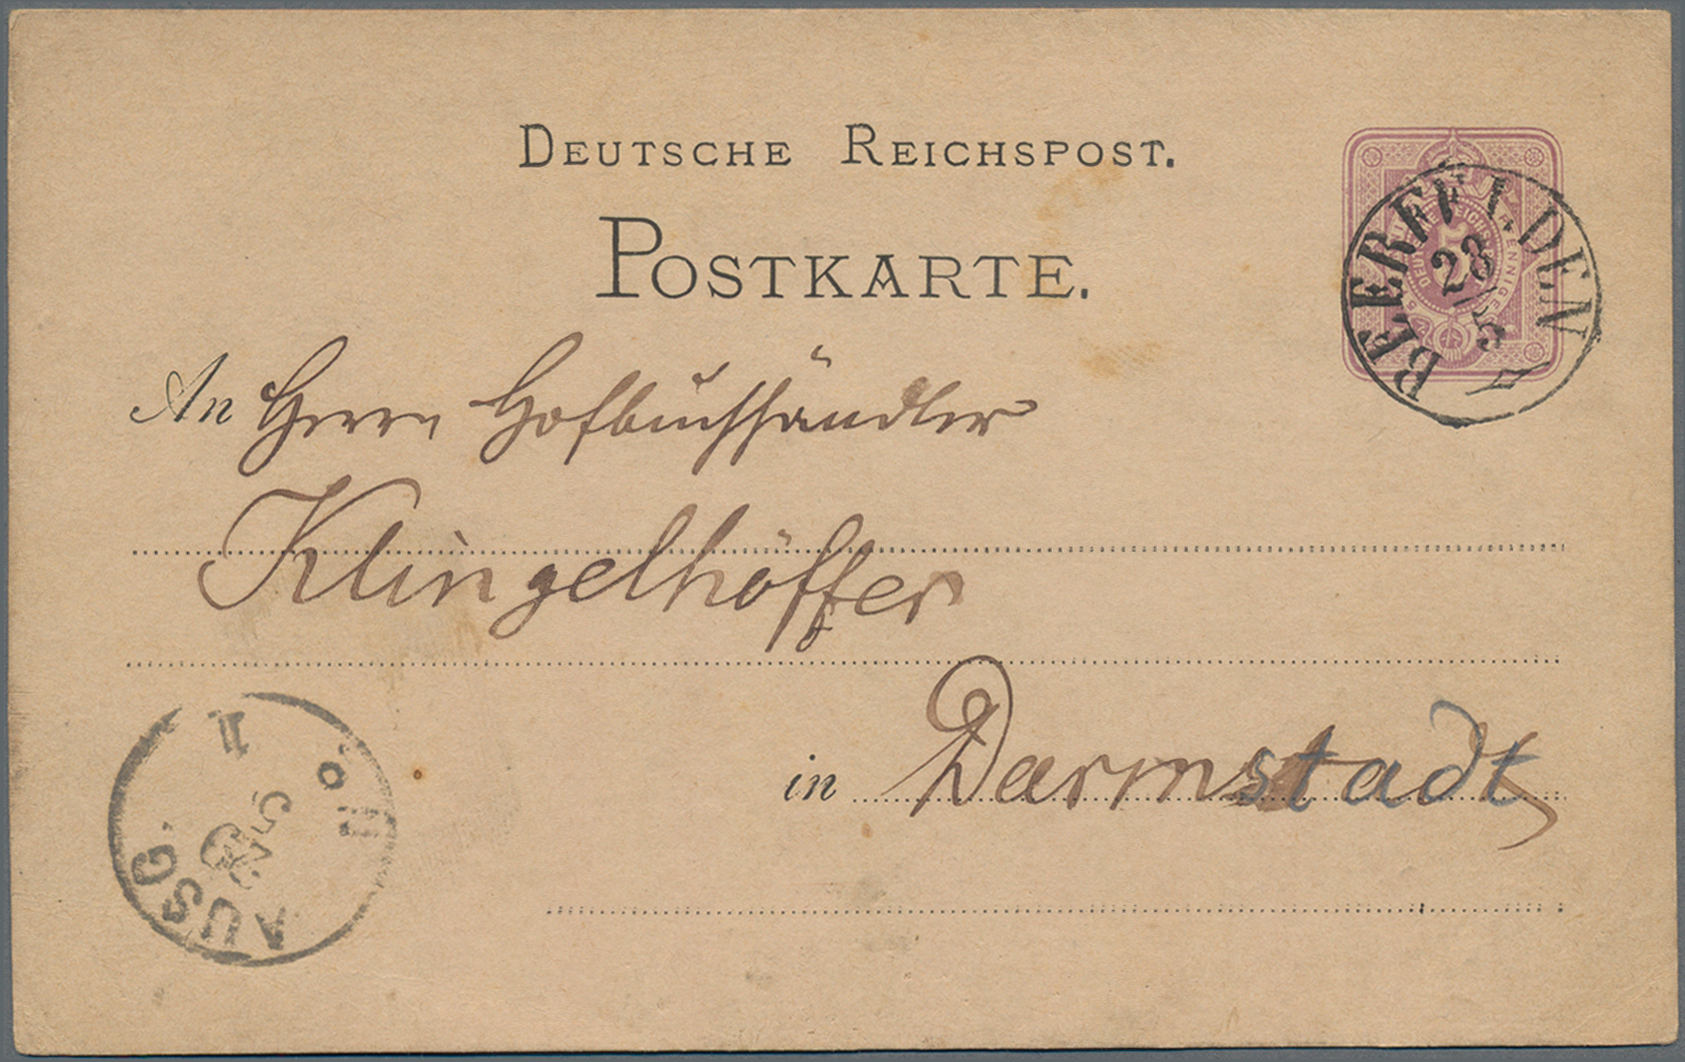 DEUTSCHE REICHSPOST.
POSTKARTE.
BEERFELDEN
23
5
An Herrn Hofbuchhändler
Klingelhöffer
in Darmstadt
AUSG.